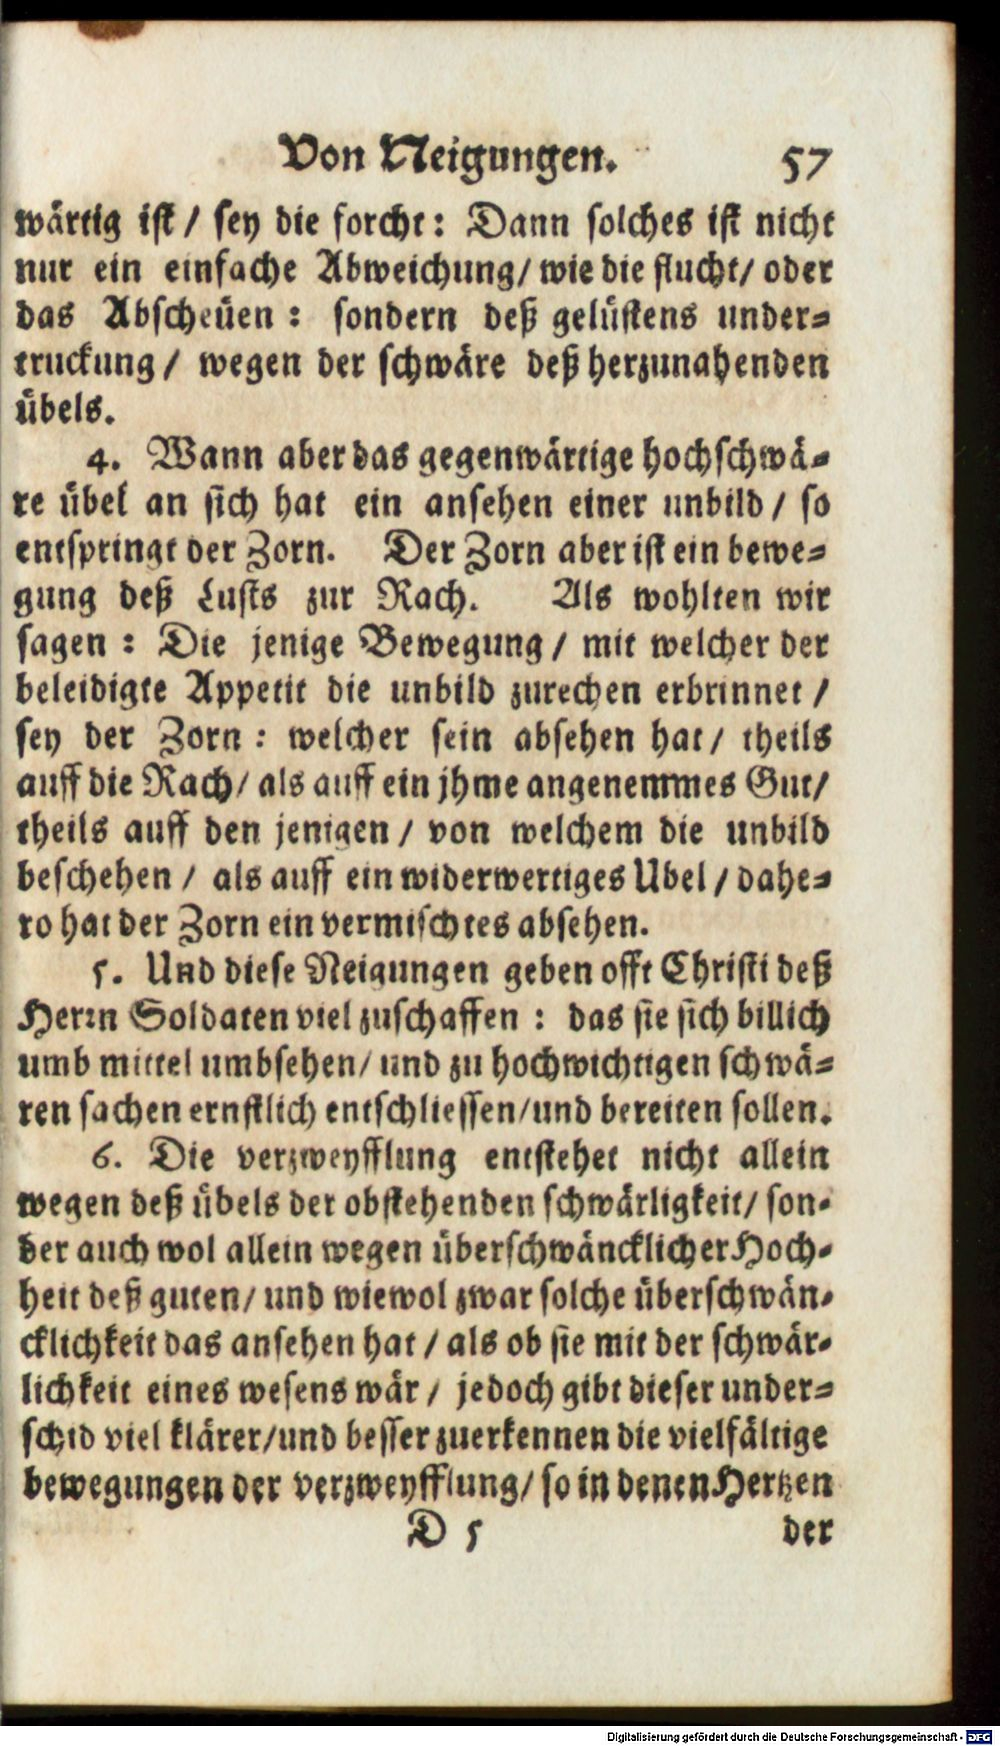 Von Neigungen. 57
wärtig ist / sey die forcht: Dann solches ist nicht
nur ein einfache Abweichung/ wie die flucht/ oder
das Abscheüen : sondern deß gelüstens under-
truckung / wegen der schwäre deß herzunahenden
übels.
4. Wann aber das gegenwärtige hochschwä-
re übel an sich hat ein ansehen einer unbild / so
entspringt der Zorn. Der Zorn aber ist ein bewe-
gung deß Lusts zur Rach. Als wohlten wir
sagen : Die jenige Bewegung / mit welcher der
beleidigte Appetit die unbild zurechen erbrinnet /
sey der Zorn : welcher sein absehen hat / theils
auff die Rach/ als auff ein jhme angenemmes Gut/
theils auff den jenigen / von welchem die unbild
beschehen / als auff ein widerwertiges Ubel / dahe-
ro hat der Zorn ein vermischtes absehen.
5. Und diese Neigungen geben offt Christi deß
Herrn Soldaten viel zuschaffen : das sie sich billich
umb mittel umbsehen/ und zu hochwichtigen schwä-
ren sachen ernstlich entschliessen/und bereiten sollen.
6. Die verzweyfflung entstehet nicht allein
wegen deß übels der obstehenden schwärligkeit/ son-
der auch wol allein wegen überschwäncklicher Hoch-
heit deß guten/ und wiewol zwar solche überschwän-
cklichkeit das ansehen hat / als ob sie mit der schwär-
lichkeit eines wesens wär / jedoch gibt dieser under-
schid viel klärer/und besser zuerkennen die vielfältige
bewegungen der verzweyfflung/ so in denen Hertzen
D 5 der
Digitalisierung gefördert durch die Deutsche Forschungsgemeinschaft - DFG